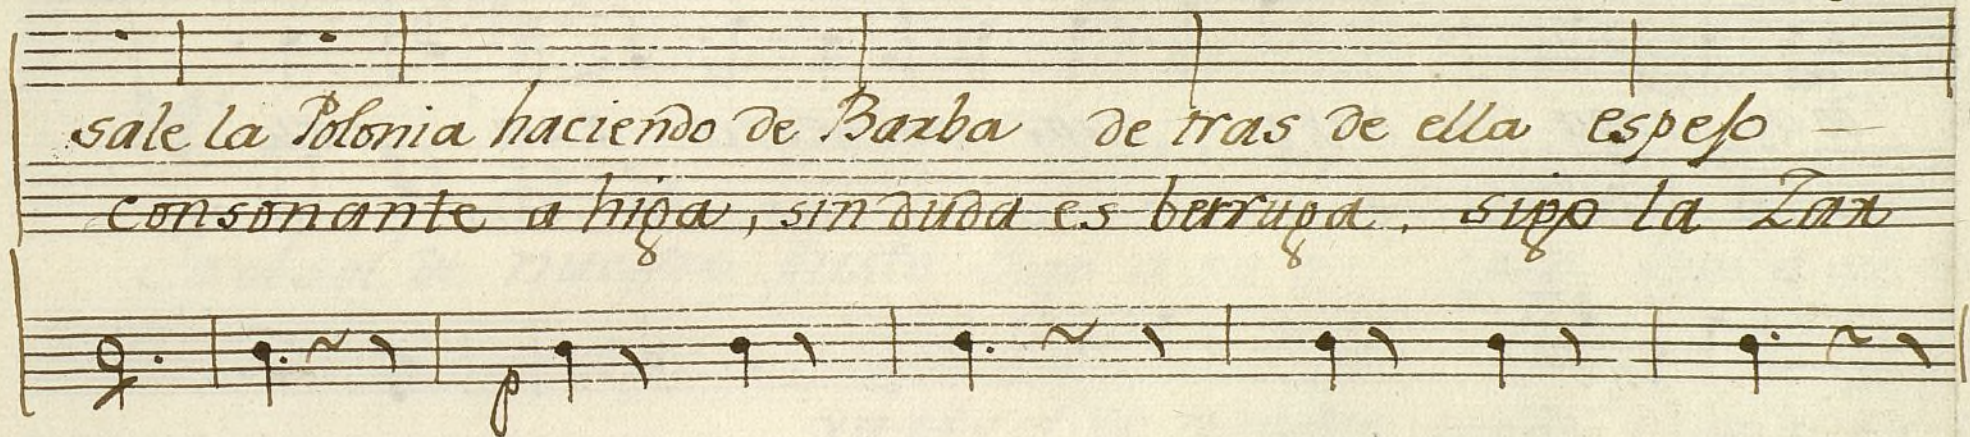 sale la Polonia haciendo de Barba de tras de ella espeso —
consonante a higa, sin duda es berruga. sigo la Zar
p